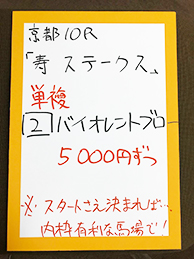 京都10R
「寿 ステークス」
単複
2 バイオレントブロー
5000円ずつ
※ スタートさえ決まれば…
内枠有利な馬場で!